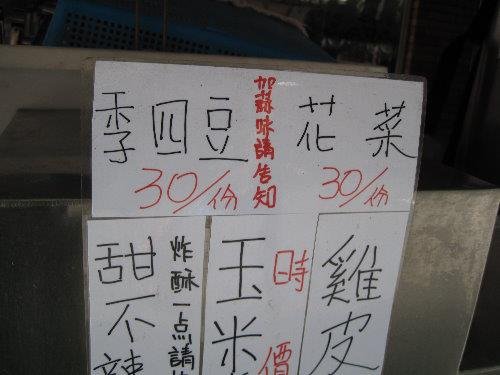 季四豆
30/份
加蒜味請告知
花菜
30/份
甜不辣
炸酥一点請
玉米
時價
雞皮